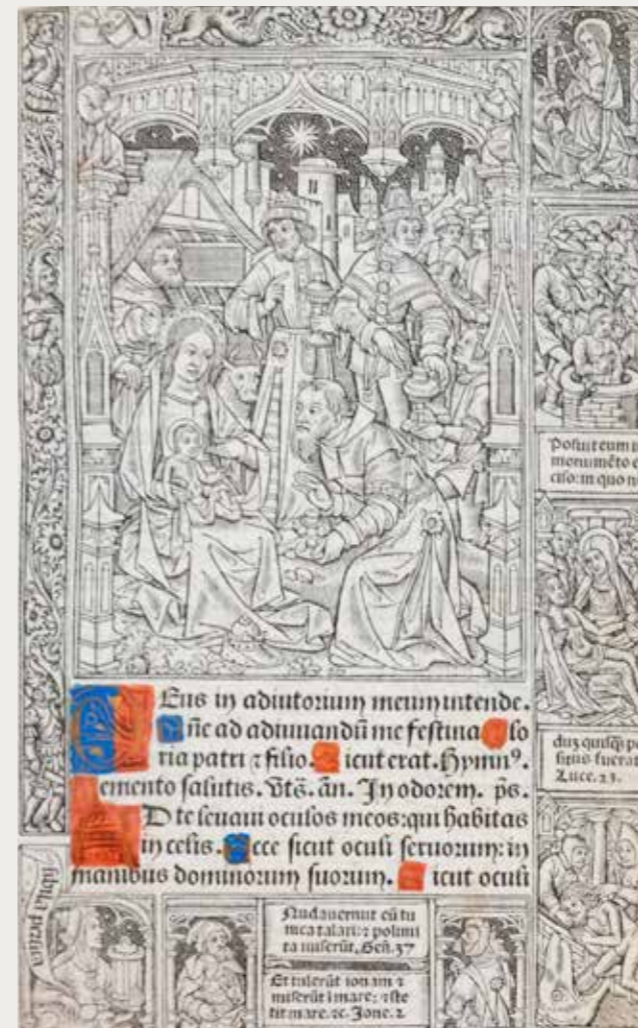 Eus in adiutorium meum intende.
ñe ad adiuuandū me festina lo
ria patri ⁊ filio. icut erat. Hymnꝰ.
emento salutis. Vts̄. ān. In odorem. p̄s.
D te leuaui oculos meos: qui habitas
in celis. Ecce sicut oculi seruorum: in
manibus dominorum suorum. icut oculi
Posuit eum in
monumēto
ciso: in quo n
duȝ quisq̄ȝ po
situs fuerat
Luce. 23.
Nudauerunt eū tu
nica talari: ⁊ polimi
ta miserūt. Geñ. 37
Et tulerūt ionam ⁊
miserūt ī mare: ⁊ ste
tit mare. ⁊c. Jone. 2